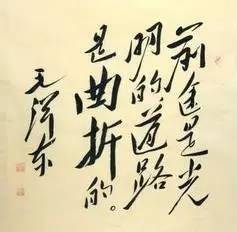 前途是光
明的道路
是曲折的。
毛泽东